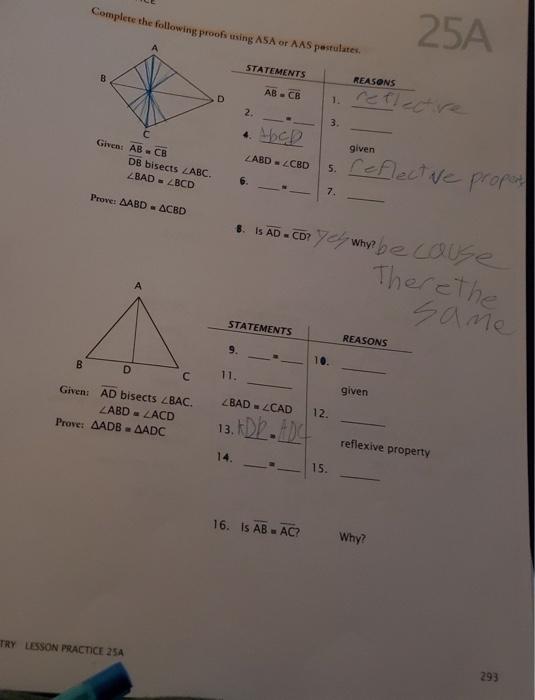 Complete the following proofs using ASA or AAS postulates.
25A
A
B
D
C
Given: AB = CB
DB bisects ∠ABC.
∠BAD = ∠BCD
Prove: △ABD = △CBD
STATEMENTS REASONS
AB = CB 1. reflective
2. __ = __ 3. ____
4. AbcD given
∠ABD = ∠CBD 5. reflective property
6. __ = __ 7. ____
8. Is AD = CD? yes Why? because
There the
same
A
B
D
C
Given: AD bisects ∠BAC.
∠ABD = ∠ACD
Prove: △ADB = △ADC
STATEMENTS REASONS
9. __ = __ 10. ____
11. ____ given
∠BAD = ∠CAD 12. ____
13. = ADC reflexive property
14. __ = __ 15. ____
16. Is AB = AC? Why?
TRY LESSON PRACTICE 25A
293